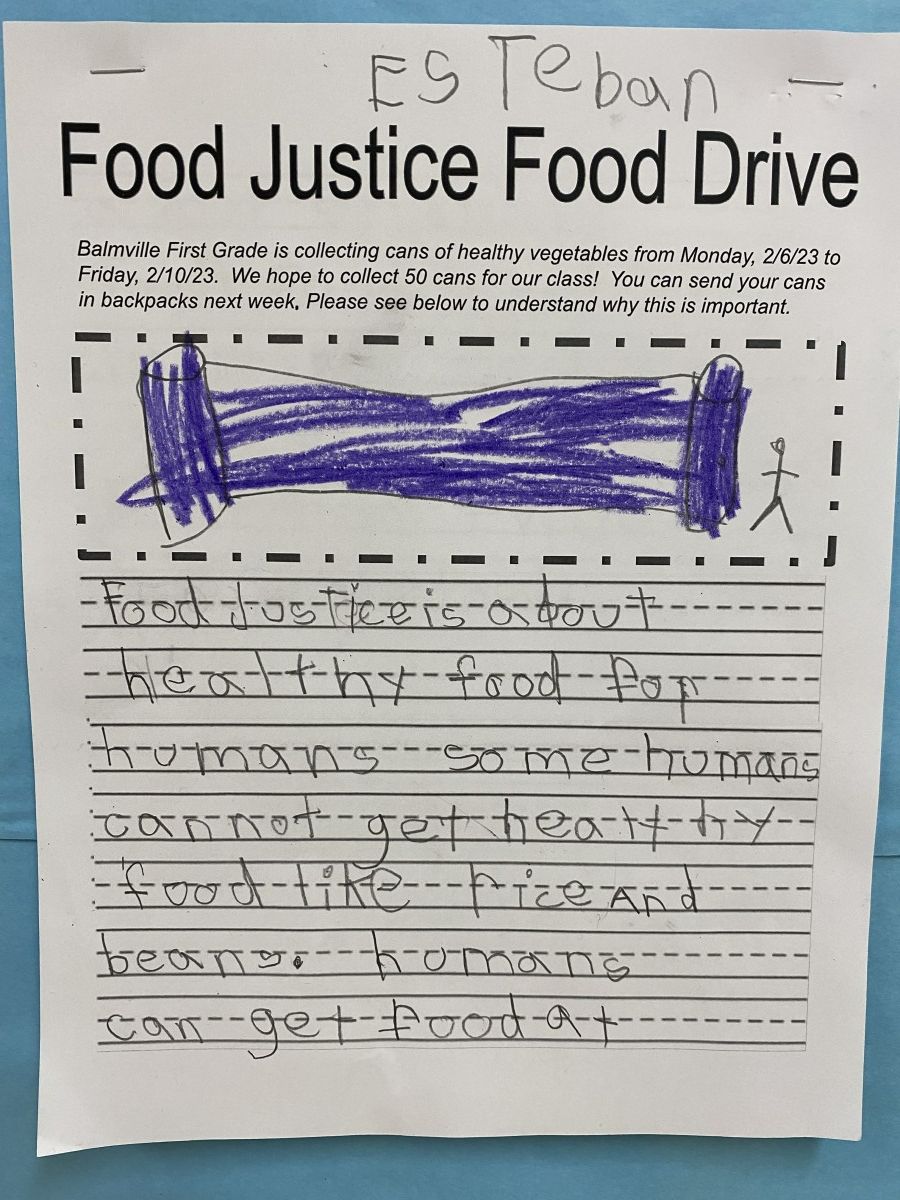 ESTeban
Food Justice Food Drive
Balmville First Grade is collecting cans of healthy vegetables from Monday, 2/6/23 to
Friday, 2/10/23. We hope to collect 50 cans for our class! You can send your cans
in backpacks next week. Please see below to understand why this is important.
Food JusTice is about
healthy food for
humans some humans
cannot get healthy
food like rice And
beans. humans
can get food at